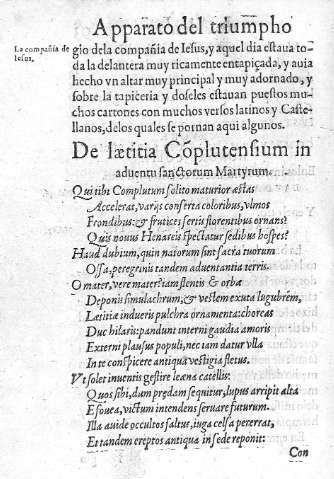 Apparato del triumpho
La compañia de
Iesus.
gio dela compañia de Iesus, y aquel dia estaua to-
da la delantera muy ricamente entapiçada, y auia
hecho vn altar muy principal y muy adornado, y
sobre la tapiceria y doseles estauan puestos mu-
chos cartones con muchos versos latinos y Caste-
llanos, delos quales se pornan aqui algunos.
De lætitia Cõplutensium in
aduentu sanctorum Martyrum.
Qui tibi Complutum solito maturior æstas
Accelerat, varijs conserta coloribus, vlmos
Frondibus: & frutices sertis florentibus ornans?
Quis nouus Henareis spectatur sedibus hospes?
Haud dubium, quin natorum sint sacra tuorum
Ossa, peregrinis tandem aduentantia terris.
O mater, vere mater? iam flentis & orba
Deponis simulachrum, & vestem exuta lugubrem,
Lætitiæ indueris pulchra ornamenta: choreas
Duc hilaris: pandunt interni gaudia amoris
Externi plausus populi, nec iam datur vlla
In te conspicere antiqua vestigia fletus.
Vt solet inuentis gestire leæna catellis:
Quos sibi, dum prædam sequitur, lupus arripit alta
E fouea, victum intendens seruare futurum.
Illa auide occultos saltus, iuga celsa pererrat,
Et tandem ereptos antiqua in sede reponit:
Con